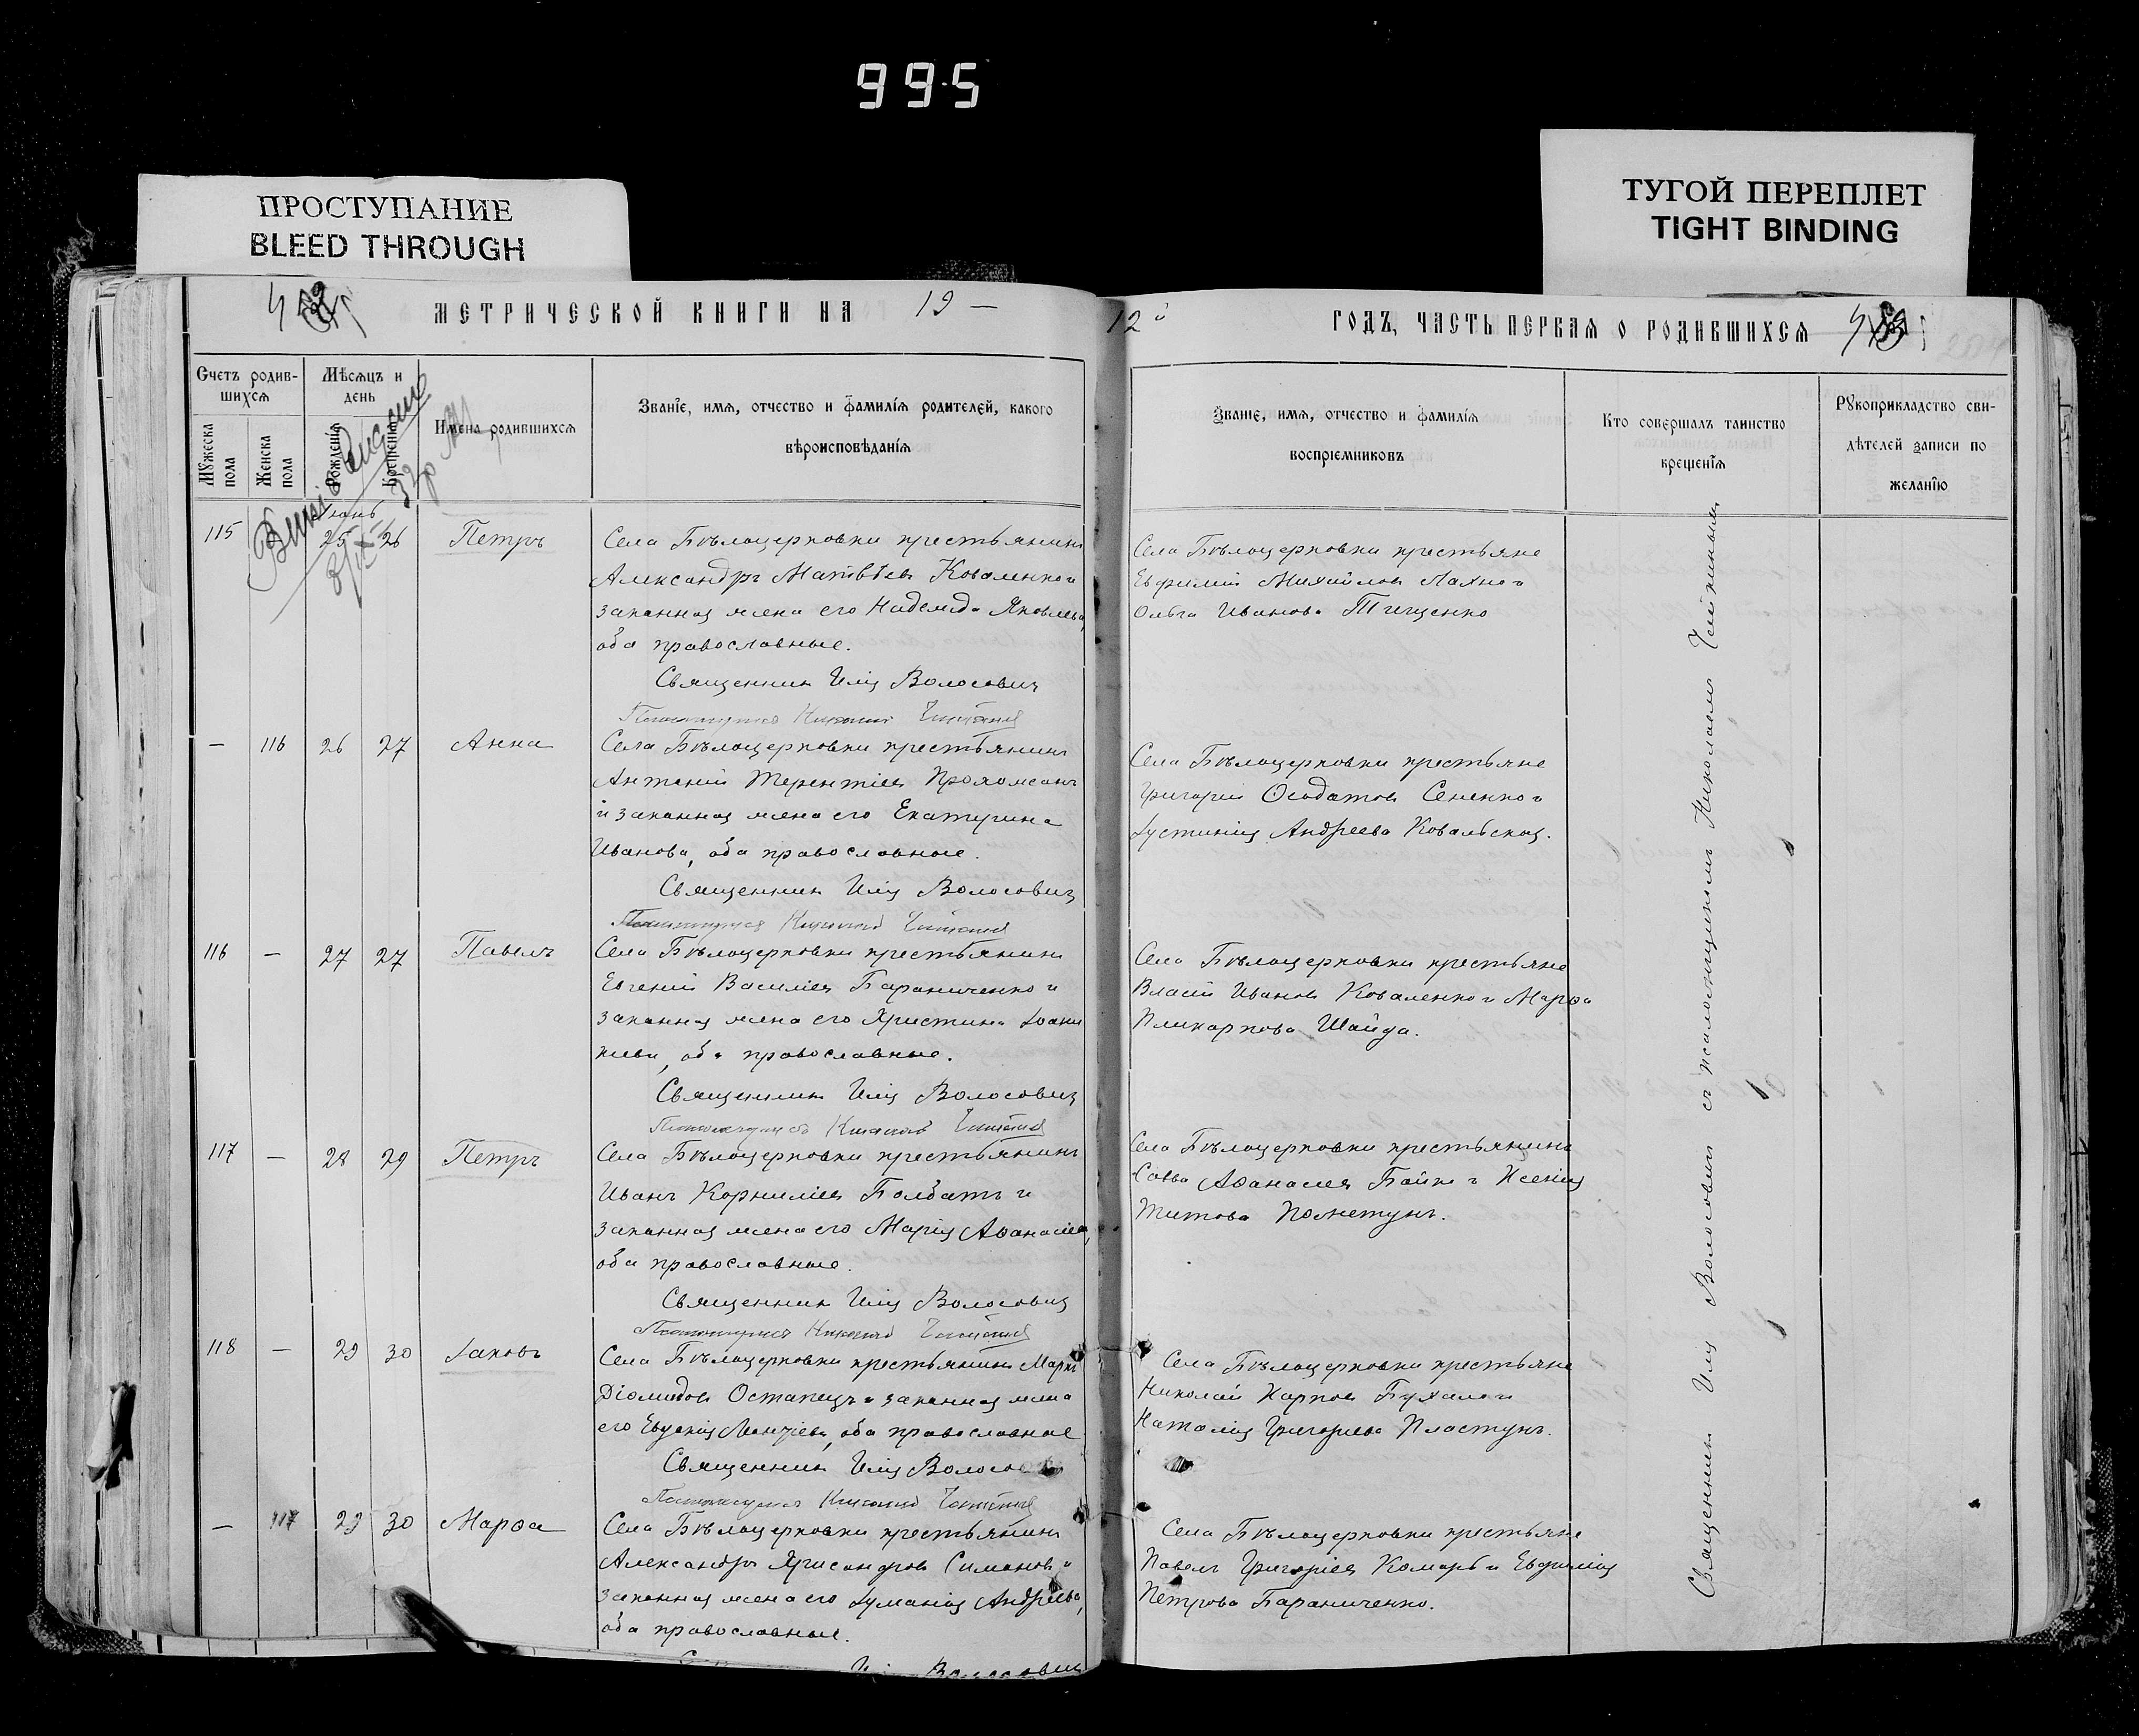 995
ПРОСТУПАНИЕ
BLEED THROUGH
ТУГОЙ ПЕРЕПЛЕТ
TIGHT BINDING
МЕТРИЧЕСКОЙ КНИГИ НА 19 —
12 ГОДЪ, ЧАСТЬ ПЕРВАЯ О РОДИВШИХСЯ
Счетъ родив-
шихся
Мужеска пола
Женска пола
Мѣсяцъ и
день
Рожденія
Крещенія
Имена родившихся
Званіе, имя, отчество и фамилія родителей, какого
вѣроисповѣданія
Званіе, имя, отчество и фамилія
воспріемниковъ
Кто совершалъ таинство
крещенія
Рукоприкладство сви-
дѣтелей записи по
желанію
Іюнь
115 25 26 Петръ
Села Бѣлоцерковки крестьянинъ
Александръ Матвѣевъ Коваленко и
законная жена его Надежда Яковлева,
оба православные.
Священникъ Илія Волосовичъ
Села Бѣлоцерковки крестьяне
Евфимій Михайловъ Лахно и
Ольга Иванова Тищенко
— 116 26 27 Анна
Села Бѣлоцерковки крестьянинъ
Антоній Терентіевъ
и законная жена его Екатерина
Иванова, оба православные.
Священникъ Илія Волосовичъ
Села Бѣлоцерковки крестьяне
Григорій Сененко и
Іустинія Андреева Ковальская.
116 — 27 27 Павелъ
Села Бѣлоцерковки крестьянинъ
Евгеній Василіевъ Бараниченко и
законная жена его Христина Іоаки
міева, оба православные.
Священникъ Илія Волосовичъ
Села Бѣлоцерковки крестьяне
Власій Ивановъ Коваленко и Марѳа
Поликарпова Шайда.
117 — 28 29 Петръ
Села Бѣлоцерковки крестьянинъ
Иванъ Корниліевъ Болбатъ и
законная жена его Марія Аѳанасіева,
оба православные.
Священникъ Илія Волосовичъ
Села Бѣлоцерковки крестьянинъ
Савва Аѳанасіевъ Бойко и Ксенія
Титова
118 — 29 30 Іаковъ
Села Бѣлоцерковки крестьянинъ Маркъ
Діомидовъ Остапецъ и законная жена
его Евдокія оба православные
Священникъ Илія
Села Бѣлоцерковки крестьяне
Николай Карповъ Бухало и
Наталія Григорьева Пластунъ.
— 117 29 30 Марѳа
Села Бѣлоцерковки крестьянинъ
Александръ Хрисанфовъ Симоновъ и
законная жена его Іуліанія Андреева,
оба православные.
Села Бѣлоцерковки крестьяне
Павелъ Григоріевъ Комаръ и Евфимія
Петрова Бараниченко.
Священникъ Илія Волосовичъ съ псаломщикомъ Николаемъ